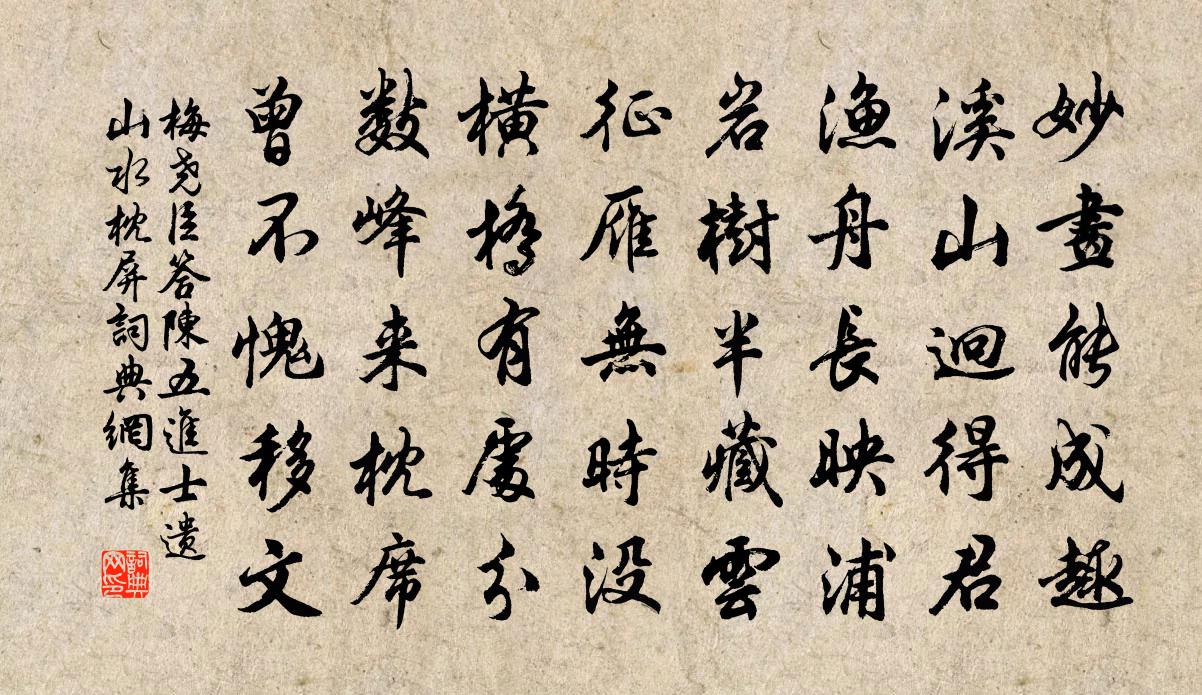 妙畫能成趣
溪山迥得君
漁舟長映浦
岩樹半藏雲
征雁無時没
橫橋有處分
数峰来枕席
曾不愧移文
梅尧臣答陳五進士遺
山水枕屏詞典網集
詞典
网印